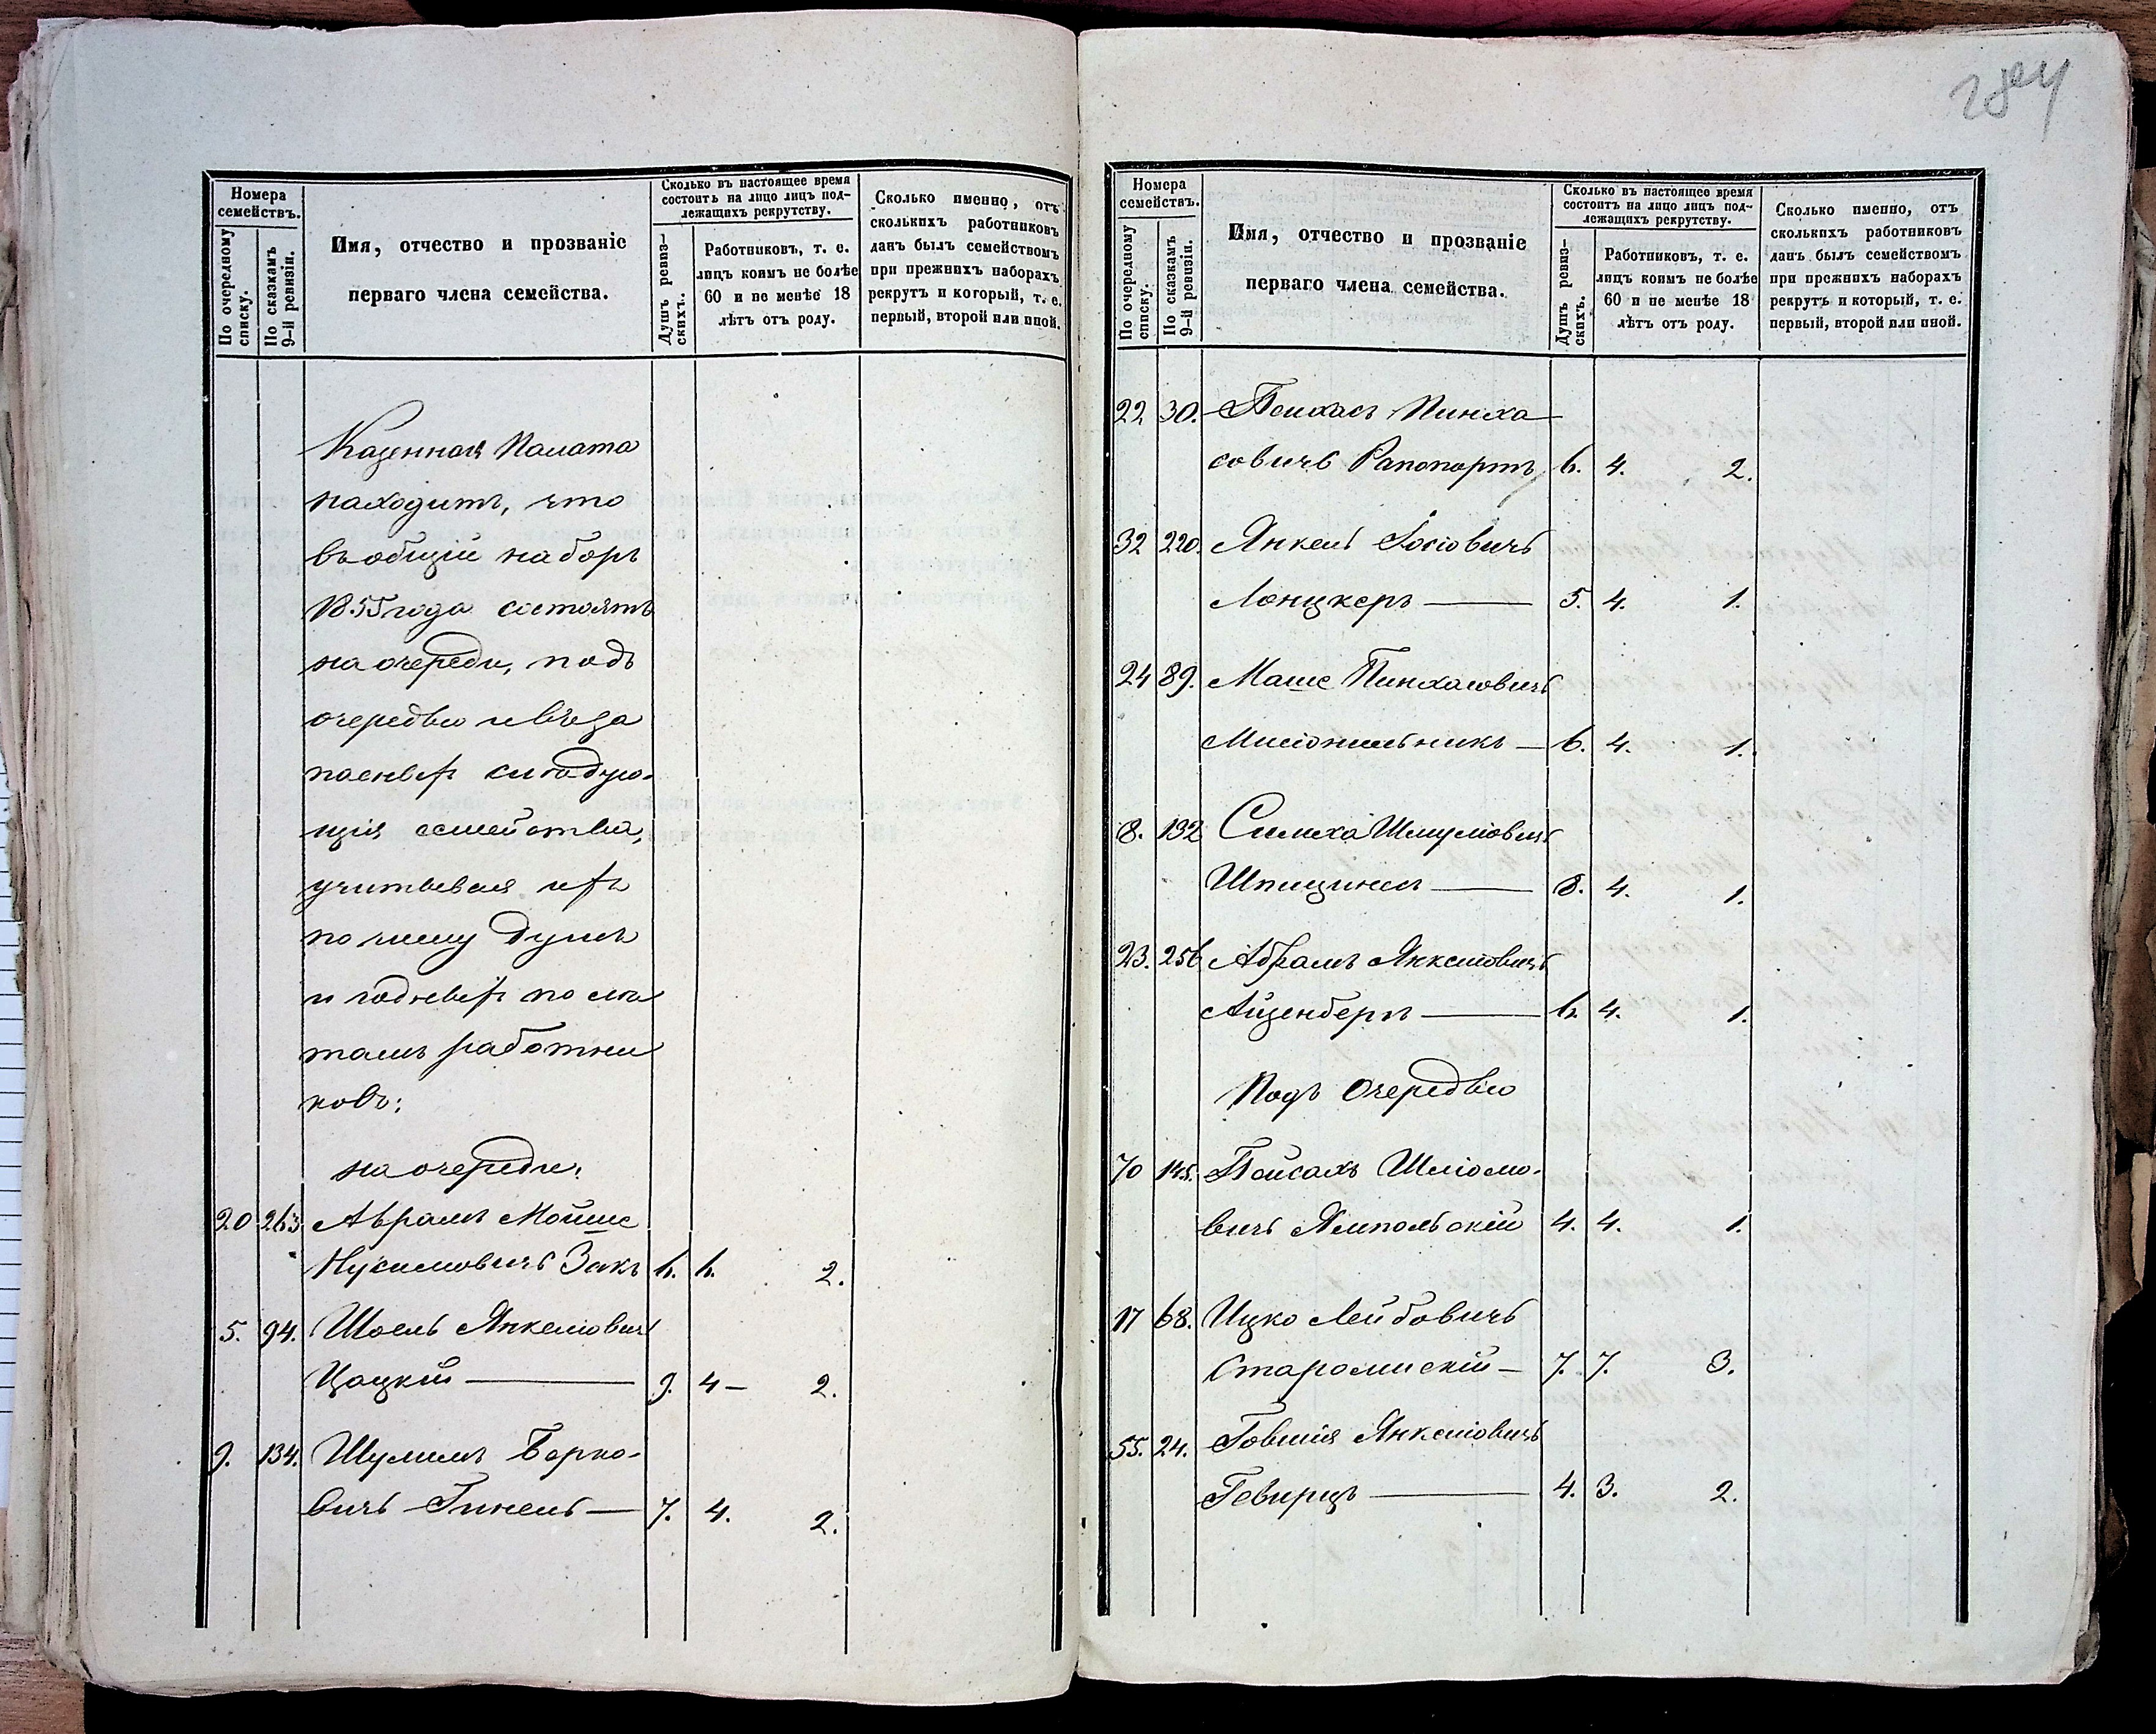 284
Номера
семействъ.
По очередному
списку.
По сказкамъ
9-й ревизіи.
Имя, отчество и прозваніе
перваго члена семейства.
Сколько въ настоящее время
состоитъ на лицо лицъ под-
лежащихъ рекрутству.
Душъ ревиз-
скихъ.
Работниковъ, т. е.
лицъ коимъ не болѣе
60 и не менѣе 18
лѣтъ отъ роду.
Сколько именно, отъ
сколькихъ работниковъ
данъ былъ семействомъ
при прежнихъ наборахъ
рекрутъ и который, т. е.
первый, второй или иной.
Казенная Палата
находитъ, что
въ общій наборъ
1855 года состоятъ
на очереди, подъ
очередью и въ за
пасныхъ слѣдую-
щія семейства,
учитывая ихъ
по числу душъ
и годныхъ по лѣ
тамъ работни
ковъ:
на очереди:
20 263 Аврамъ Мойше
Нусимовичъ Закъ 6. 6. 2.
5. 94. Шоель Янкелiовичъ
Цацкій — 9. 4 — 2.
9. 134. Шулимъ Берко-
вичъ Гинель — 7. 4. 2.
Номера
семействъ.
По очередному
списку.
По сказкамъ
9-й ревизіи.
Имя, отчество и прозваніе
перваго члена семейства.
Сколько въ настоящее время
состоитъ на лицо лицъ под-
лежащихъ рекрутству.
Душъ ревиз-
скихъ.
Работниковъ, т. е.
лицъ коимъ не болѣе
60 и не менѣе 18
лѣтъ отъ роду.
Сколько именно, отъ
сколькихъ работниковъ
данъ былъ семействомъ
при прежнихъ наборахъ
рекрутъ и который, т. е.
первый, второй или иной.
22 30. Пинхасъ Пинха
совичъ Рапопортъ 6. 4. 2.
32 220. Янкель Іосіовичъ
Лонцкеръ — 5. 4. 1.
24 89. Маше Пинхасовичъ
— 6. 4. 1.
8. 132 Симха Шмулiовичъ
Шпицинель — 8. 4. 1.
23. 256 Абрамъ Янкелiовичъ
Айзенбергъ — 6. 4. 1.
Подъ Очередью
70 145. Пейсахъ Шліомо-
вичъ Ямпольскій 4. 4. 1.
17 68. Ицко Лейбовичъ
Старомискій — 7. 7. 3.
55. 24. Говшія Янкелiовичъ
Гевирцъ — 4. 3. 2.